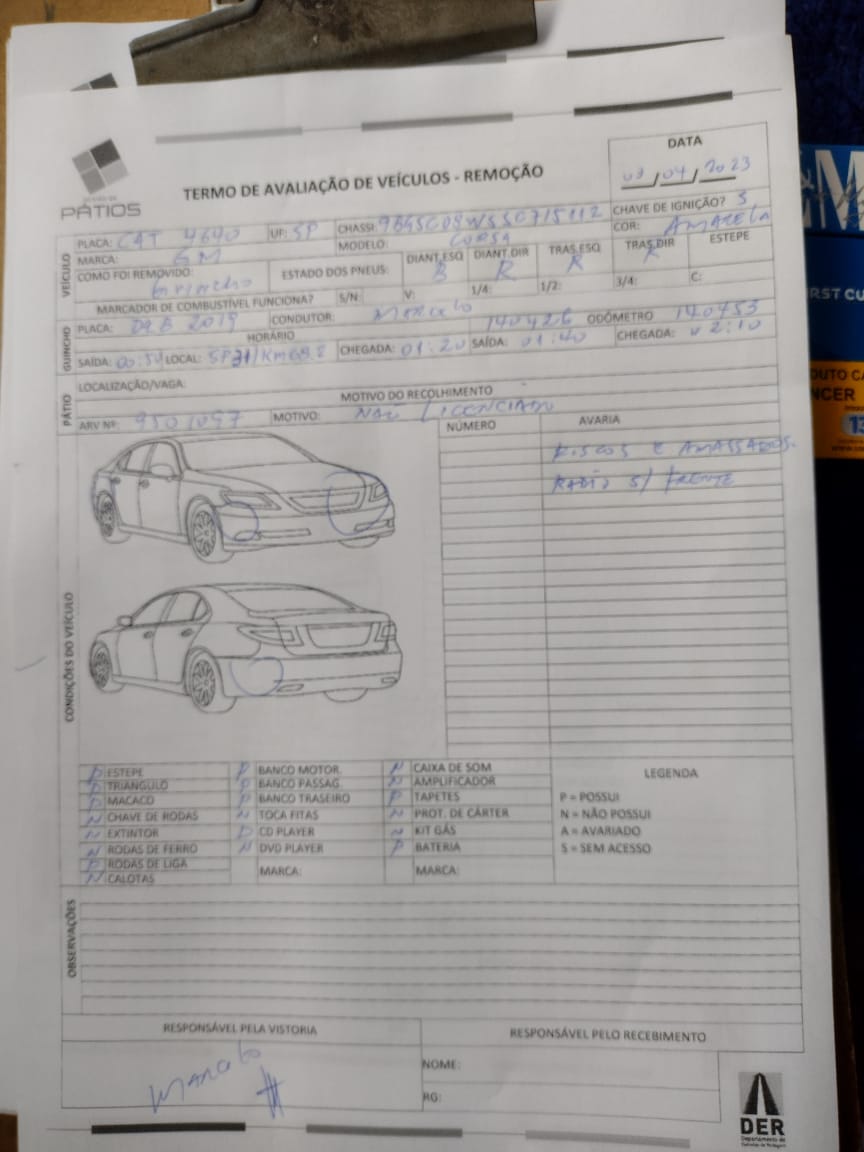 DATA
03/04/2023
TERMO DE AVALIAÇÃO DE VEÍCULOS - REMOÇÃO
PÁTIOS
CHAVE DE IGNIÇÃO? S
VEÍCULO
PLACA: CAT 4640 UF: SP CHASSI:
COR: AMARELA
MARCA: GM MODELO: CORSA
COMO FOI REMOVIDO: Guincho ESTADO DOS PNEUS: DIANT.ESQ DIANT.DIR R TRAS.ESQ R TRAS.DIR R ESTEPE
MARCADOR DE COMBUSTÍVEL FUNCIONA? S/N: V: 1/4: 1/2: 3/4: C:
GUINCHO
PLACA: 2019 CONDUTOR: Marcelo 140426 ODÔMETRO 140453
HORÁRIO
SAÍDA: 00:50 LOCAL: CHEGADA: 01:20 SAÍDA: 01:40 CHEGADA: 02:10
PÁTIO
LOCALIZAÇÃO/VAGA:
MOTIVO DO RECOLHIMENTO
ARV Nº: 9501097 MOTIVO: NÃO LICENCIADO
CONDIÇÕES DO VEÍCULO
NÚMERO AVARIA
RISCOS E AMASSADOS.
RADIO S/ FRENTE
P ESTEPE P BANCO MOTOR. N CAIXA DE SOM
P TRIANGULO P BANCO PASSAG. N AMPLIFICADOR
P MACACO P BANCO TRASEIRO P TAPETES
N CHAVE DE RODAS N TOCA FITAS N PROT. DE CÁRTER
N EXTINTOR P CD PLAYER N KIT GÁS
N RODAS DE FERRO N DVD PLAYER P BATERIA
P RODAS DE LIGA MARCA: MARCA:
N CALOTAS
LEGENDA
P = POSSUI
N = NÃO POSSUI
A = AVARIADO
S = SEM ACESSO
OBSERVAÇÕES
RESPONSÁVEL PELA VISTORIA
Marcelo
RESPONSÁVEL PELO RECEBIMENTO
NOME:
RG:
DER
Departamento de Estradas de Rodagem